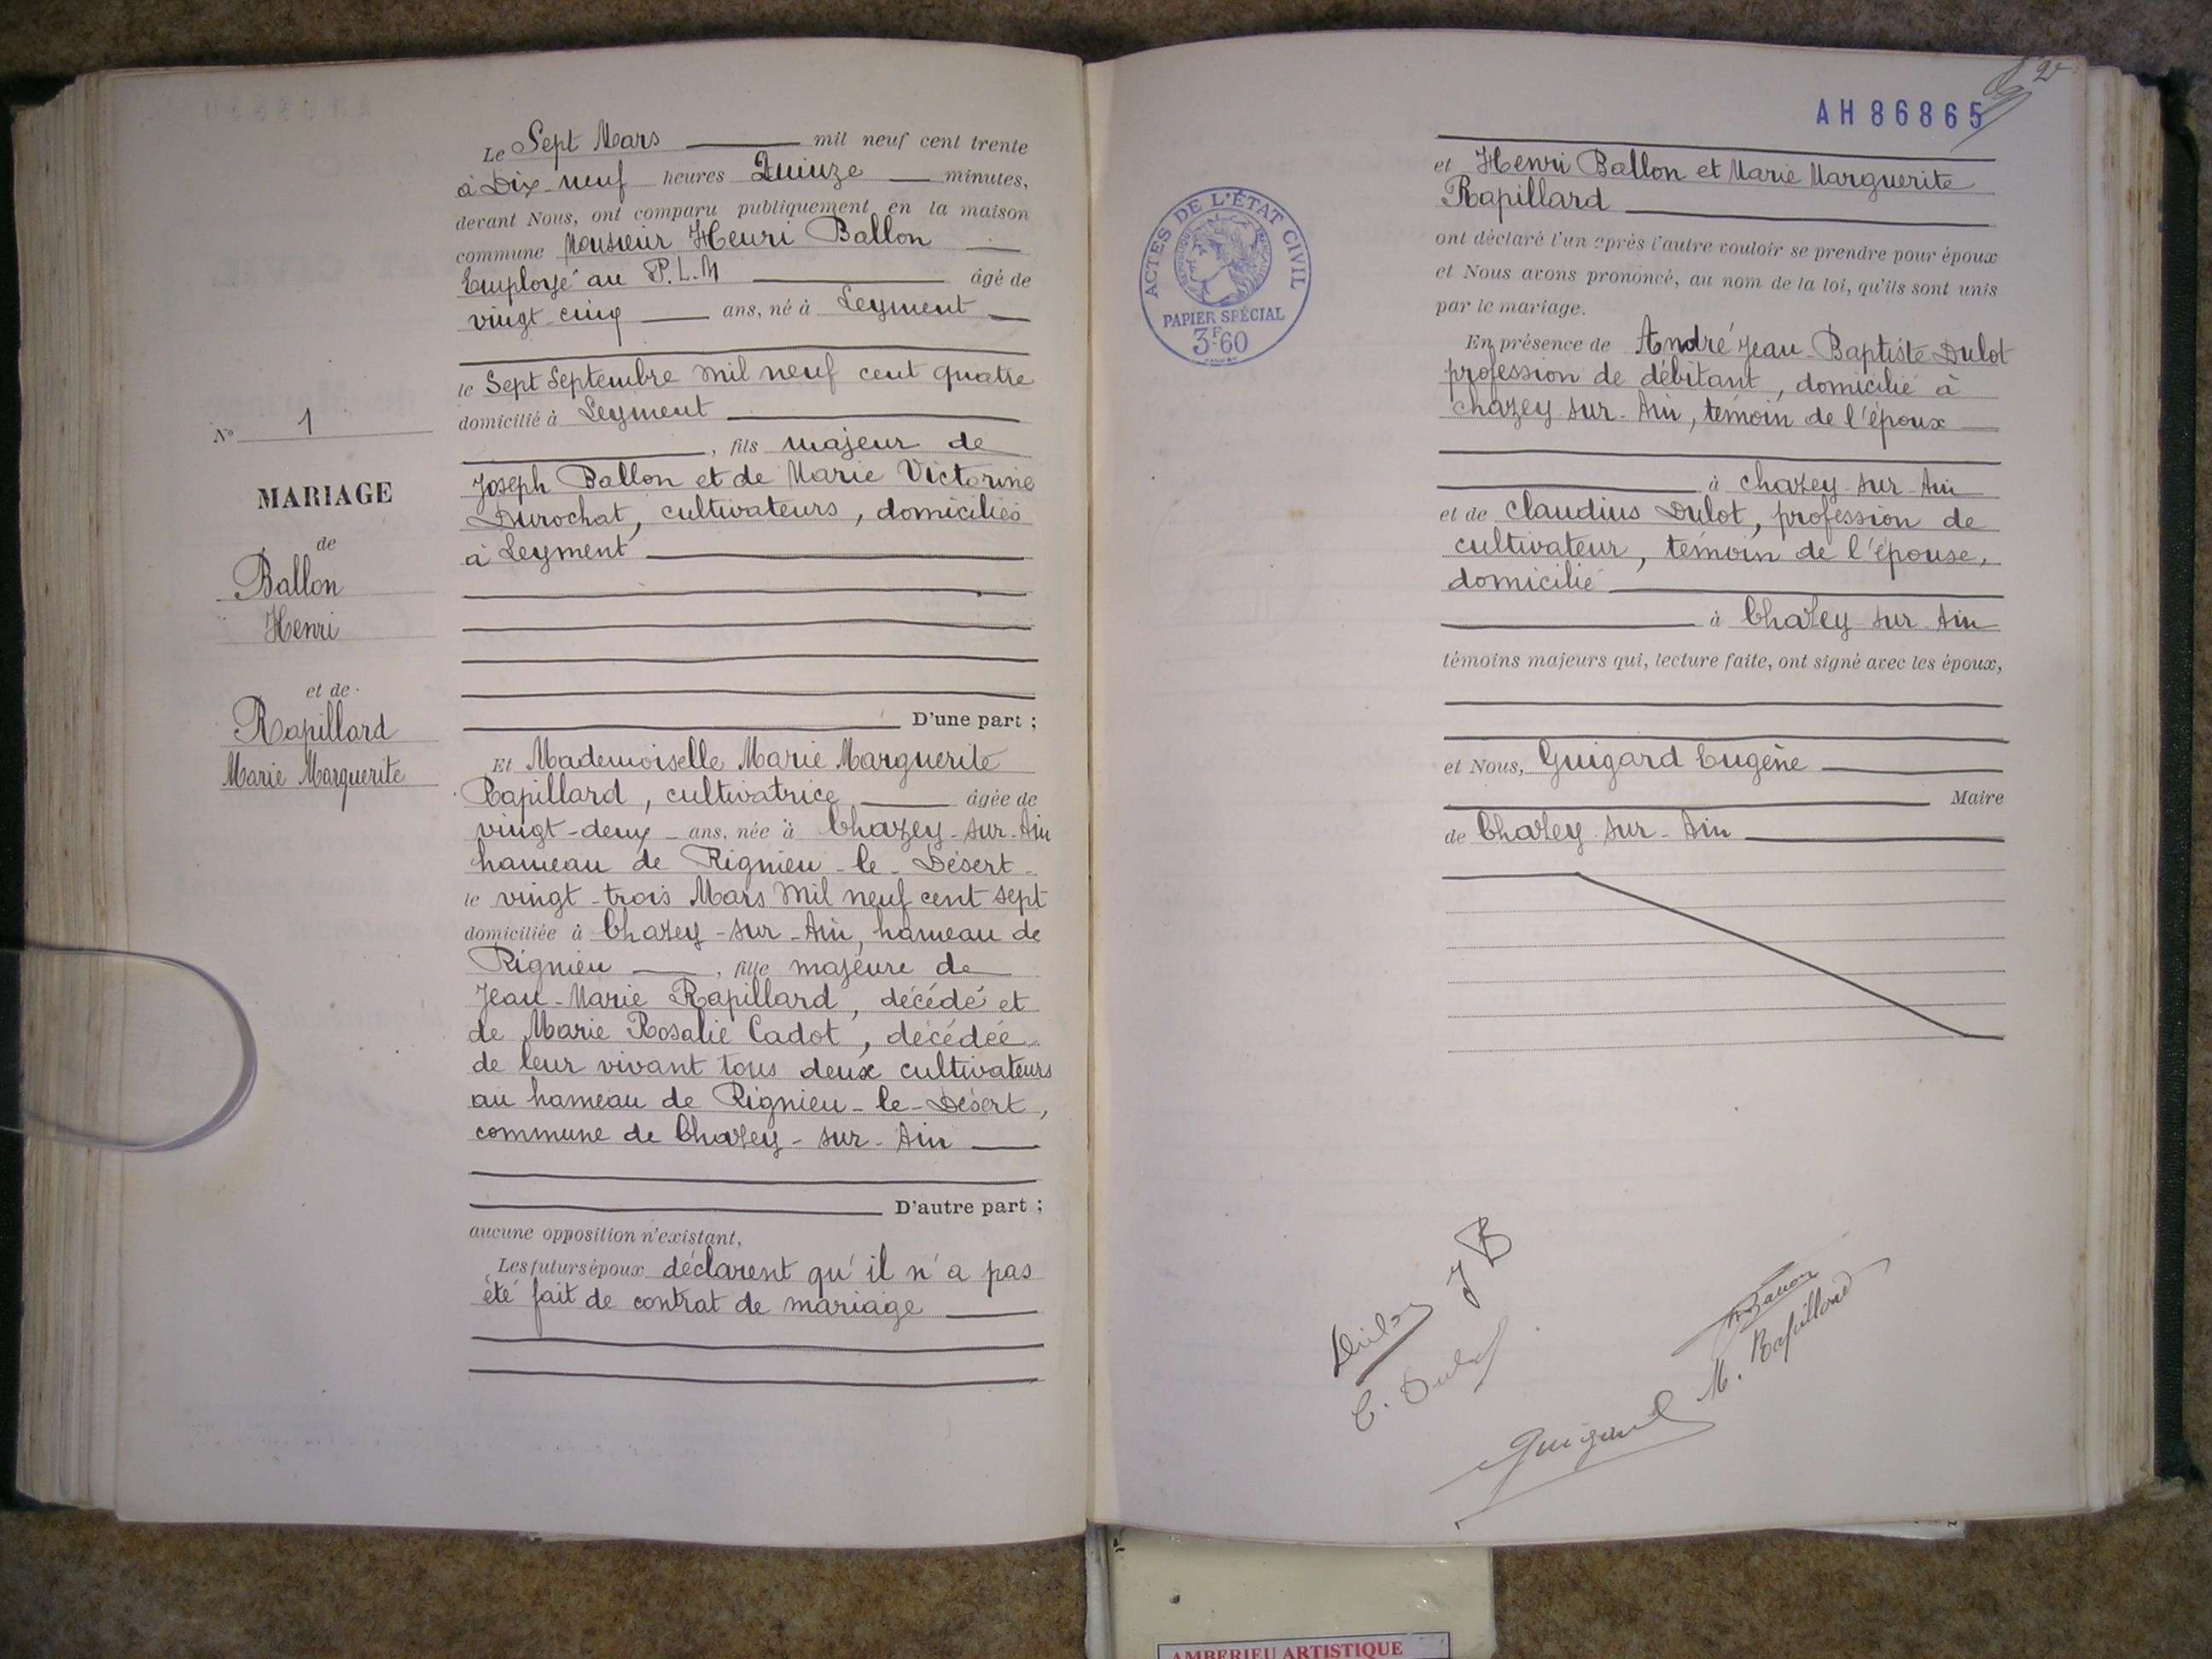 N° 1
MARIAGE
de
Ballon
Henri
et de
Rapillard
Marie Marguerite
Le Sept Mars mil neuf cent trente
à Dix-neuf heures Quinze minutes,
devant Nous, ont comparu publiquement en la maison
commune Monsieur Henri Ballon
Employé au P.L.M âgé de
vingt-cinq ans, né à Leyment
le Sept Septembre mil neuf cent quatre
domicilié à Leyment
, fils majeur de
Joseph Ballon et de Marie Victorine
Durochat, cultivateurs, domiciliés
à Leyment
D'une part ;
Et Mademoiselle Marie Marguerite
Rapillard, cultivatrice âgée de
vingt-deux ans, née à Chazey-sur-Ain
hameau de Rignieu-le-Désert
le vingt-trois Mars mil neuf cent sept
domiciliée à Chazey-sur-Ain, hameau de
Rignieu , fille majeure de
Jean-Marie Rapillard, décédé et
de Marie Rosalie Cadot, décédée
de leur vivant tous deux cultivateurs
au hameau de Rignieu-le-Désert,
commune de Chazey-sur-Ain
D'autre part ;
aucune opposition n'existant,
Les futurs époux déclarent qu'il n'a pas
été fait de contrat de mariage
2
AH86865
ACTES DE L'ÉTAT CIVIL
RÉPUBLIQUE FRANÇAISE
PAPIER SPÉCIAL
3F60
et Henri Ballon et Marie Marguerite
Rapillard
ont déclaré l'un après l'autre vouloir se prendre pour époux
et Nous avons prononcé, au nom de la loi, qu'ils sont unis
par le mariage.
En présence de André Jean-Baptiste Dulot
profession de débitant, domicilié à
chazey-sur-Ain, témoin de l'époux
à chazey-sur-Ain
et de Claudius Dulot, profession de
cultivateur, témoin de l'épouse,
domicilié
à Chazey-sur-Ain
témoins majeurs qui, lecture faite, ont signé avec les époux,
et Nous, Guigard Eugène
Maire
de Chazey-sur-Ain
J B
Dulot
C. Dulot
HBallon
M. Rapillard
Guigard
AMBERIEU ARTISTIQUE